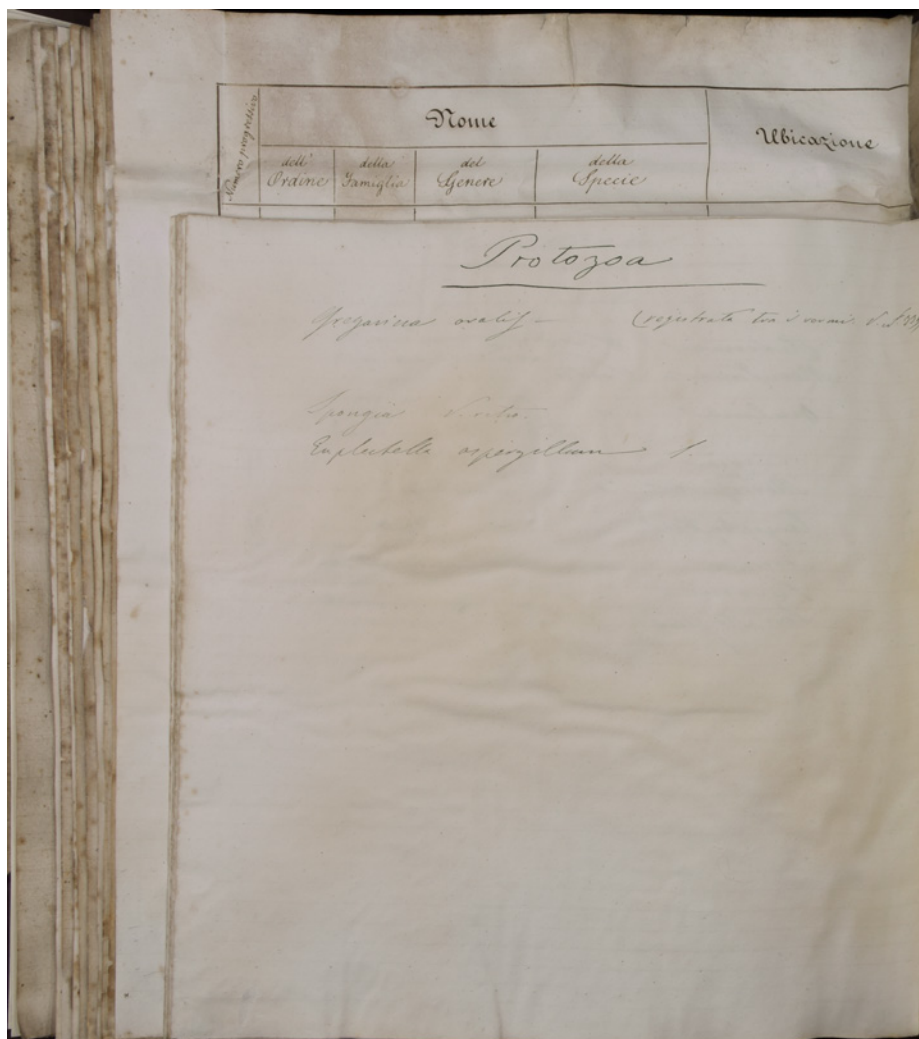 Numero progressivo
Nome
Ubicazione
dell' Ordine
della Famiglia
del Genere
della Specie
Protozoa
Gregarina ovalis — (registrata tra i vermi. V.
Spongia
Euplectella aspergillum 1.